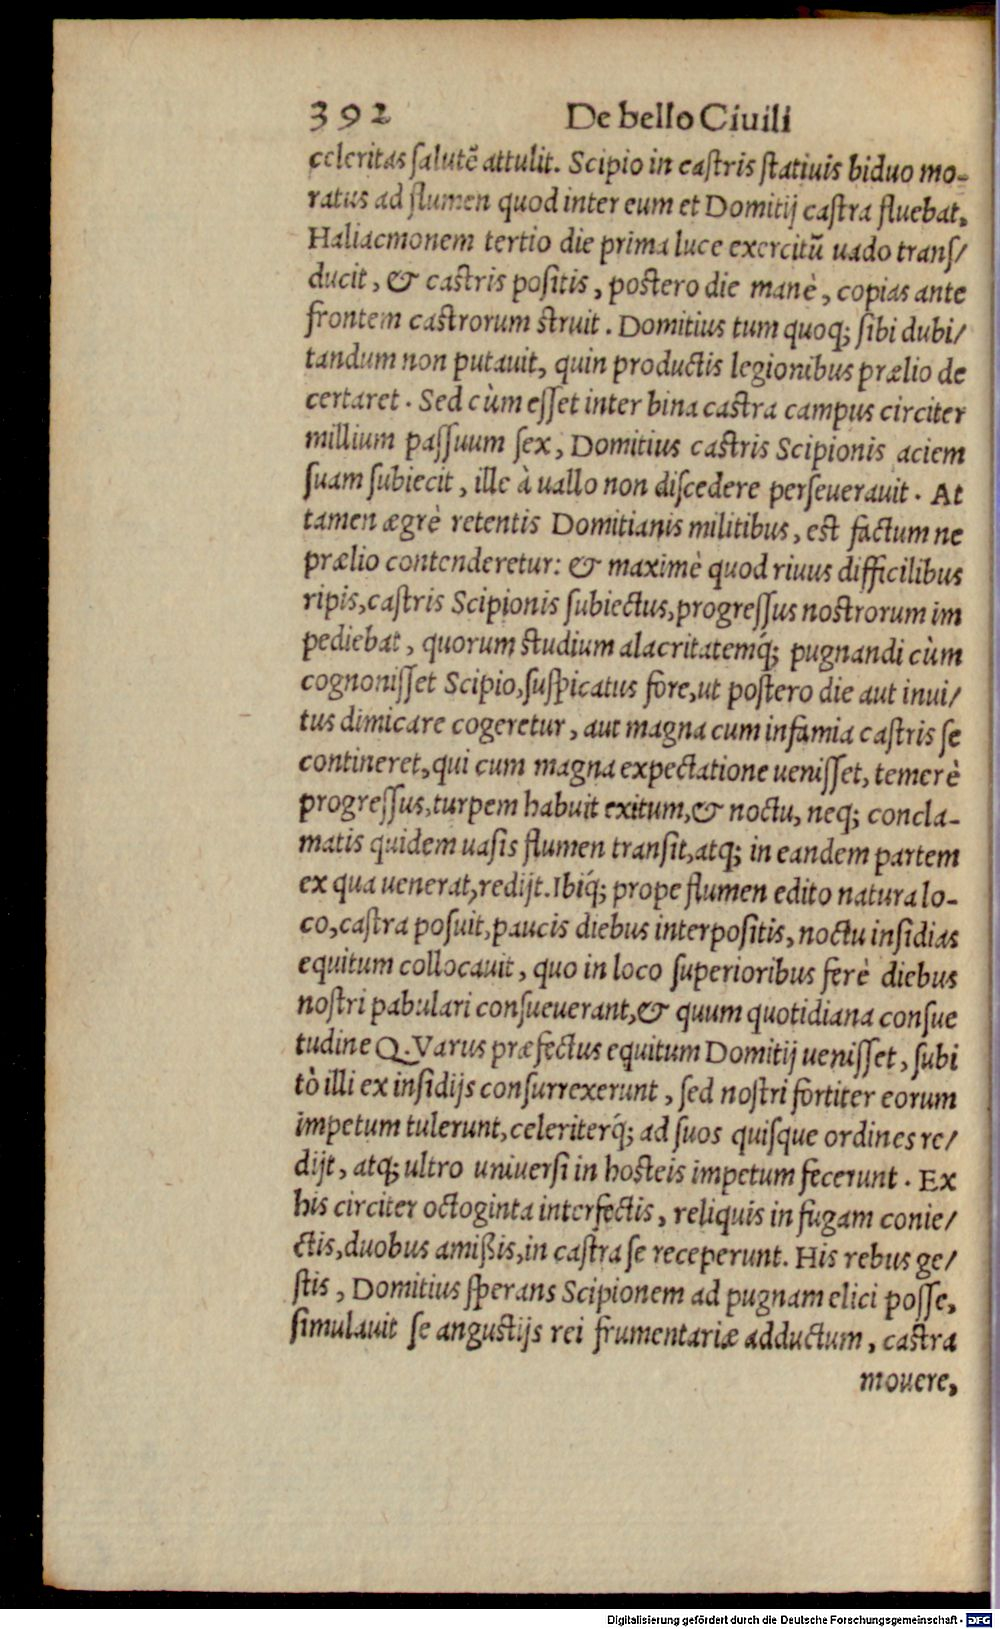 392 De bello Ciuili
celeritas salutē attulit. Scipio in castris statiuis biduo mo-
ratus ad flumen quod inter eum et Domitij castra fluebat,
Haliacmonem tertio die prima luce exercitū uado trans/
ducit, & castris positis, postero die manè, copias ante
frontem castrorum struit. Domitius tum quoq; sibi dubi/
tandum non putauit, quin productis legionibus prælio de
certaret. Sed cùm esset inter bina castra campus circiter
millium passuum sex, Domitius castris Scipionis aciem
suam subiecit, ille à uallo non discedere perseuerauit. At
tamen ægrè retentis Domitianis militibus, est factum ne
prælio contenderetur: & maximè quod riuus difficilibus
ripis, castris Scipionis subiectus, progressus nostrorum im
pediebat, quorum studium alacritatemq́; pugnandi cùm
cognonisset Scipio, suspicatus fore, ut postero die aut inui/
tus dimicare cogeretur, aut magna cum infamia castris se
contineret, qui cum magna expectatione uenisset, temerè
progressus, turpem habuit exitum, & noctu, neq; concla-
matis quidem uasis flumen transit, atq; in eandem partem
ex qua uenerat, redijt. Ibiq́; prope flumen edito natura lo-
co, castra posuit, paucis diebus interpositis, noctu insidias
equitum collocauit, quo in loco superioribus ferè diebus
nostri pabulari consueuerant, & quum quotidiana consue
tudine Q. Varus præfectus equitum Domitij uenisset, subi
tò illi ex insidijs consurrexerunt, sed nostri fortiter eorum
impetum tulerunt, celeriterq́; ad suos quisque ordines re/
dijt, atq; ultro uniuersi in hosteis impetum fecerunt. Ex
his circiter octoginta interfectis, reliquis in fugam conie/
ctis, duobus amißis, in castra se receperunt. His rebus ge/
stis, Domitius sperans Scipionem ad pugnam elici posse,
simulauit se angustijs rei frumentariæ adductum, castra
mouere,
Digitalisierung gefördert durch die Deutsche Forschungsgemeinschaft - DFG